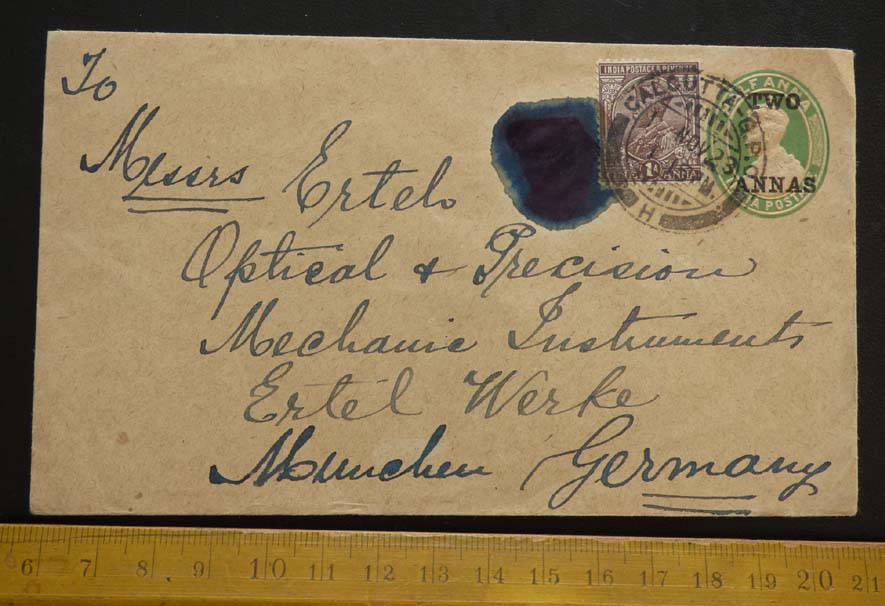 To
Messrs Ertel
Optical & Precision
Mechanic Instruments
Ertel Werke
Munchen Germany
INDIA POSTAGE & REVENUE
1A
ANNA
CALCUTTA G.P.O.
NOV 23
H
HALF ANNA
TWO
ANNAS
INDIA POSTAGE
6 7 8 9 10 11 12 13 14 15 16 17 18 19 20 21